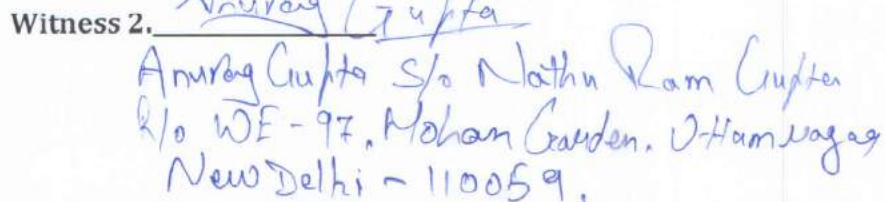 Anurag Gupta
Witness 2.
Anurag Gupta S/o Nathu Ram Gupta
R/o WE-97, Mohan Garden, Uttam Nagar
New Delhi - 110059.